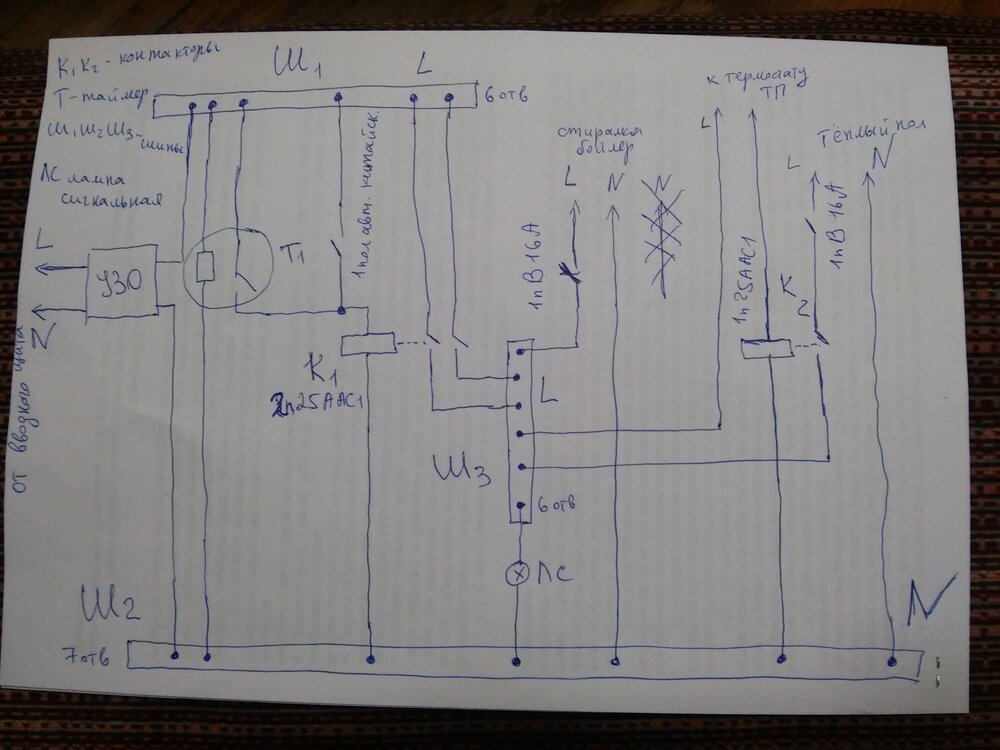 К1 К2 - контакторы
Т - таймер
Ш1 Ш2 Ш3 - шины
ЛС лампа сигнальная
Ш1
L
6 отв
L
УЗО
N
от вводного щита
Т1
1пол авт. китайск.
К1
2п25ААС1
стиралка
бойлер
L
N
N
1пВ16А
L
Ш3
6 отв
ЛС
к термостату
ТП
L
1п25ААС1
К2
тёплый пол
L
N
1пВ16А
Ш2
7 отв
N